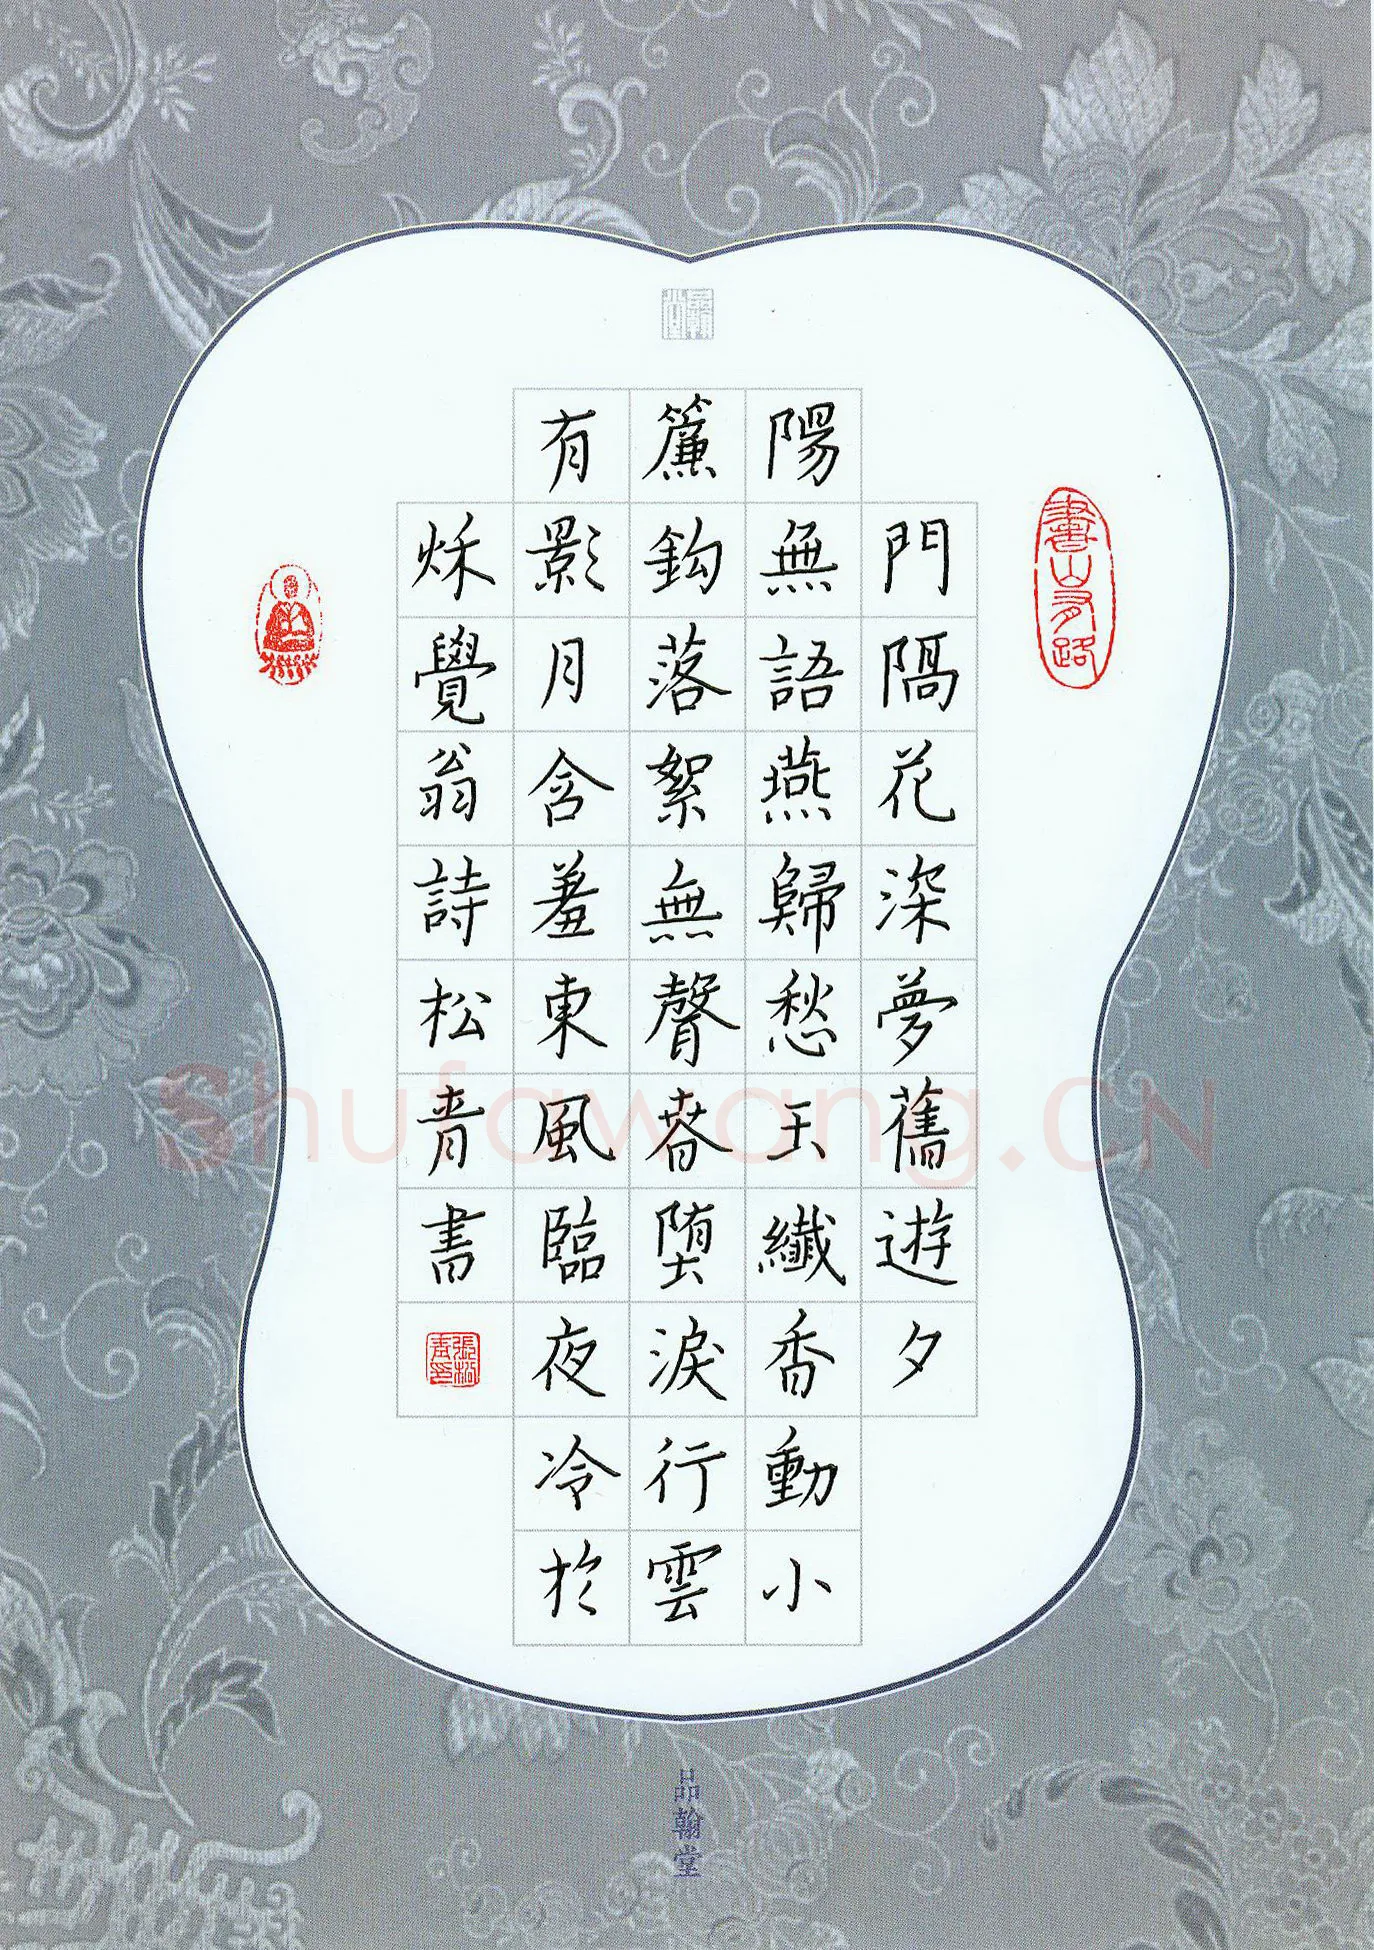 門隔花深夢舊遊夕
陽無語燕歸愁玉纖香動小
簾鉤落絮無聲春墮淚行雲
有影月含羞東風臨夜冷於
秌覺翁詩松青書
書山有路
張松青印
品翰堂
Shufawang.CN